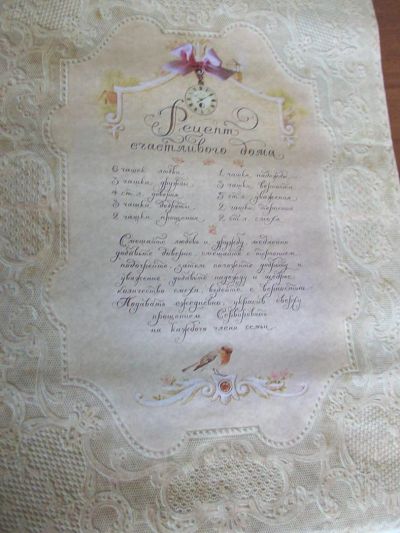 Рецепт
счастливого дома
6 чашек любви
3 чашки дружбы
4 ст.л. доверия
3 чашки доброты
2 чашки прощения
1 чашка надежды
3 чашки верности
5 ст.л. уважения
2 чашки терпения
2 ст.л. смеха
Смешайте любовь и дружбу, медленно
добавьте доверие, смешанное с терпением,
подогрейте. Затем положите доброту и
уважение, добавьте надежду и щедрое
количество смеха, взбейте с верностью.
Подавать ежедневно, украсив сверху
прощением. Сервировать
на каждого члена семьи.